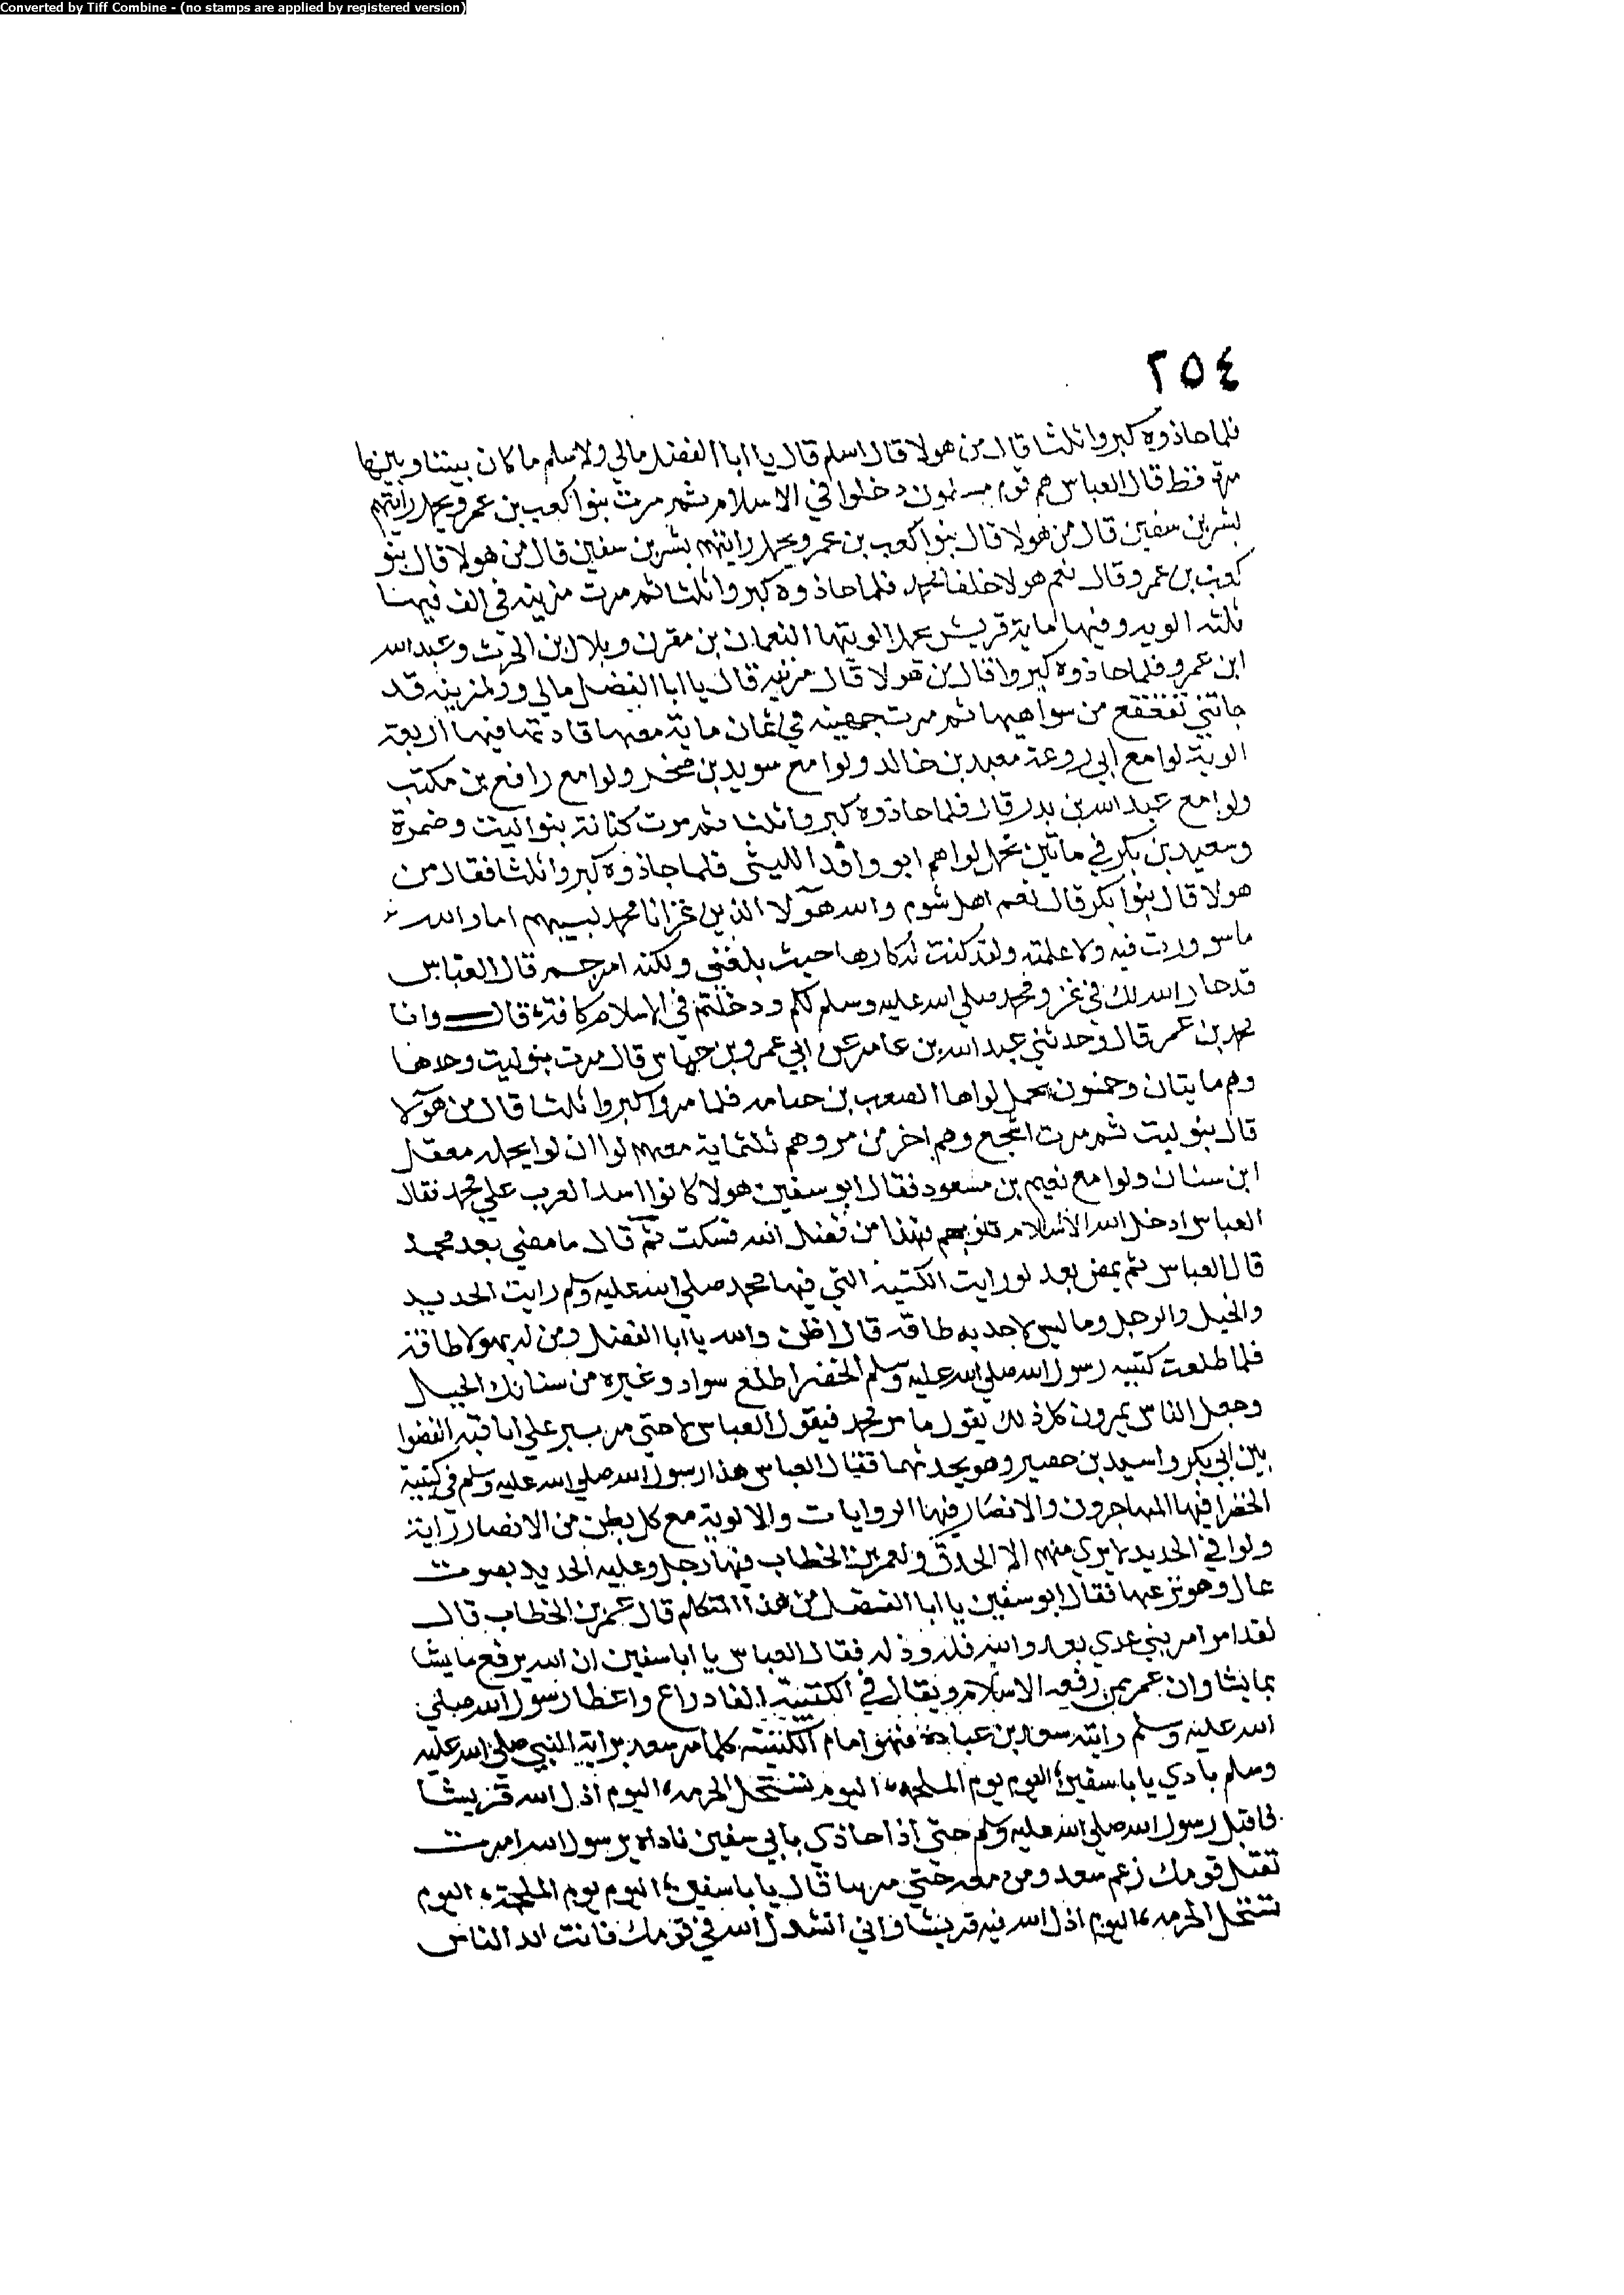 Converted by Tiff Combine - (no stamps are applied by registered version)
٢٥٤
فلما حاذوه كبروا ثلثا قال من هولا قال اسلم قال يا ابا الفضل مالي ولاسلم ما كان بيننا وبينها
مرة قط قال العباس هم قوم مسلمون دخلوا في الاسلام ثم مرت بنوا كعب بن عمرو يحمل رايتهم
بشر بن سفين قال من هولا قال بنوا كعب بن عمرو يحمل رايتهم بشر بن سفين قال من هولا قال بنو
كعب بن عمرو قال نعم هولا حلفا محمد فلما حاذوه كبروا ثلثا ثم مرت مزينه في الف فيها
ثلثه الويه وفيها ماية فريس يحمل الويتها النعمان بن مقرن وبلال بن الحرث وعبد الله
ابن عمرو فلما حاذوه كبروا قال من هولا قال مزينه قال يا ابا الفضل مالي ولمزينه قد
جاتني تقعقع من سواهيها ثم مرت جهينه في ثمان ماية معها قادتها فيها اربعة
الوية لوا مع ابي روعة معبد بن خالد ولوا مع سويد بن صخر ولوا مع رافع بن مكتب
ولوا مع عبد الله بن بدر قال فلما حاذوه كبروا ثلثا ثم مرت كنانة بنوا ليث وضمرة
وسعيد بن بكر في ماتين يحمل لواهم ابو واقد الليثي فلما حاذوه كبروا ثلثا فقال من
هولا قال بنوا بكر قال نعم اهل شوم والله هولا الذين غزانا محمد لسببهم اما والله
ما سوورت فيه ولا علمته ولقد كنت له كارها حيث بلغني ولكنه امر حم قال العباس
قد خار الله لك في غزو محمد صلي الله عليه وسلم لكم ودخلتم في الاسلام كافة قال وانا
محمد بن عمر قال وحدثني عبد الله بن عامر عن ابي عمرو بن حماس قال مرت بنو ليث وحدها
وهم مايتان وخمسون يحمل لواها الصعب بن جثامه فلما مروا كبروا ثلثا قال من هولا
قال بنو ليث ثم مرت اشجع وهم اخر من مر وهم ثلثماية معهم لواان لوا يحمله معقل
ابن سنان ولوا مع نعيم بن مسعود فقال ابو سفين هولا كانوا اشد العرب علي محمد فقال
العباس ادخل الله الاسلام قلوبهم فهذا من فضل الله فسكت ثم قال ما مضي بعد محمد
قال العباس ثم يمض بعد لو رايت الكتيبة التي فيها محمد صلي الله عليه وسلم رايت الحديد
والخيل والرجل وما ليس لاحد به طاقه قال اظن والله يا ابا الفضل ومن له بهولا طاقة
فلما طلعت كتيبه رسول الله صلي الله عليه وسلم الخضرا طلع سواد وغيره من سنابك الخيل
وجعل الناس يمرون كل ذلك يقول ما مر محمد فيقول العباس لا حتي مر يسير علي ناقته القصوا
بين ابي بكر واسيد بن حصير وهو يحدثهما فقال العباس هذا رسول الله صلي الله عليه وسلم في كتيبة
الخضرا فيها المهاجرون والانصار فيها الروايات والالوية مع كل بطن من الانصار راية
ولوا في الحديد لا يري منهم الا الحدق ولعمر بن الخطاب فيها رجل وعليه الحديد بصوت
عال وهو يزعها فقال ابو سفين يا ابا الفضل من هذا المتكلم قال عمر بن الخطاب قال
لقد امر امر بني عدي بعد والله قله وذله فقال العباس يا ابا سفين ان الله يرفع ما يشا
بما يشا وان عمر ممن رفعه الاسلام ويقال في الكتيبة الفا دراع واعطا رسول الله صلي
الله عليه وسلم رايته سعد بن عبادة فهو امام الكتيبه فلما مر سعد براية النبي صلي الله عليه
وسلم نادي يا با سفين اليوم يوم الملحمه اليوم تستحل الحرمه اليوم اذل الله قريشا
فاقبل رسول الله صلي الله عليه وسلم حتي اذا حاذي بابي سفين ناداه يرسول الله امرت
تقتل قومك زعم سعد ومن معه حتي مر بنا قال يا با سفين اليوم يوم الملحمة اليوم
تستحل الحرمه اليوم اذل الله فيه قريشا واني انشدك الله في قومك فانت ابر الناس